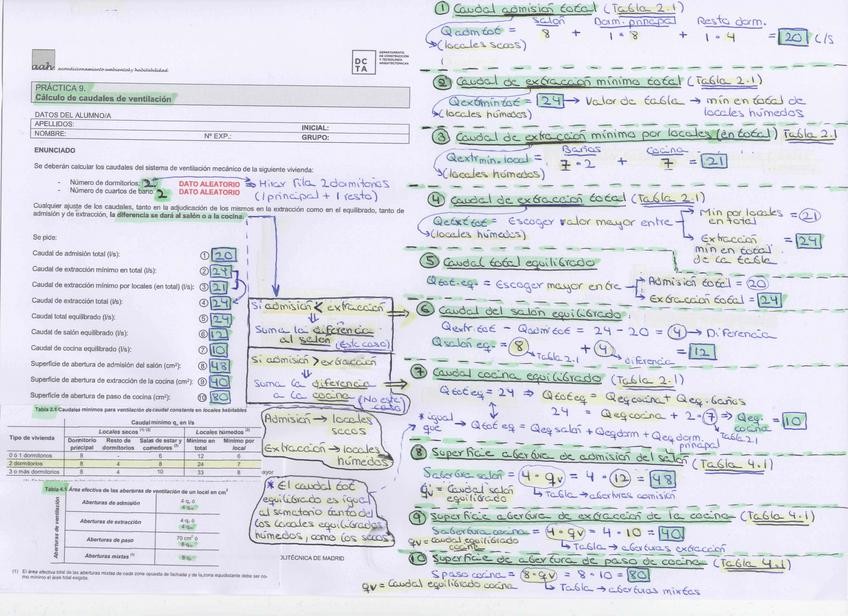 aah acondicionamiento ambiental y habitabilidad
DC
TA
DEPARTAMENTO
DE CONSTRUCCIÓN
Y TECNOLOGÍA
ARQUITECTÓNICAS
PRÁCTICA 9.
Cálculo de caudales de ventilación
DATOS DEL ALUMNO/A
APELLIDOS: INICIAL:
NOMBRE: Nº EXP.: GRUPO:
ENUNCIADO
Se deberán calcular los caudales del sistema de ventilación mecánico de la siguiente vivienda:
- Número de dormitorios: 2 DATO ALEATORIO → Mirar fila 2 dormitorios
- Número de cuartos de baño: 2 DATO ALEATORIO (1 principal + 1 resto)
Cualquier ajuste de los caudales, tanto en la adjudicación de los mismos en la extracción como en el equilibrado, tanto de
admisión y de extracción, la diferencia se dará al salón o a la cocina.
Se pide:
Caudal de admisión total (l/s): ① 20
Caudal de extracción mínimo en total (l/s): ② 24
Caudal de extracción mínimo por locales (en total) (l/s): ③ 21
Caudal de extracción total (l/s): ④ 24
Caudal total equilibrado (l/s): ⑤ 24
Caudal de salón equilibrado (l/s): ⑥ 12
Caudal de cocina equilibrado (l/s): ⑦ 10
Superficie de abertura de admisión del salón (cm²): ⑧ 48
Superficie de abertura de extracción de la cocina (cm²): ⑨ 40
Superficie de abertura de paso de cocina (cm²): ⑩ 80
Si admisión < extracción
⇓
Suma la diferencia
al salón (Este caso)
Si admisión > extracción
⇓
Suma la diferencia
a la cocina (No este caso)
Admisión → locales
secos
Extracción → locales
húmedos
* El caudal tot
equilibrado es igual
al sumatorio tanto de
los locales equilibrados
húmedos, como los secos
Caudales mínimos para ventilación de caudal constante en locales habitables
Caudal mínimo qv en l/s
Tipo de vivienda
Locales secos
Locales húmedos
Dormitorio principal
Resto de dormitorios
Salas de estar y comedores
Mínimo en total
Mínimo por local
0 ó 1 dormitorios 8 - 6 12 6
2 dormitorios 8 4 8 24 7
3 o más dormitorios 8 4 10 33 8
Tabla 4.1 Área efectiva de las aberturas de ventilación de un local en cm²
Aberturas de ventilación
Aberturas de admisión
Aberturas de extracción
Aberturas de paso 70 cm² ó
Aberturas mixtas
POLITÉCNICA DE MADRID
① Caudal admisión total (Tabla 2.1)
Salón Dorm. principal Resto dorm.
Qadm tot = 8 + 1·8 + 1·4 = 20 l/s
(locales secos)
② Caudal de extracción mínimo total (Tabla 2.1)
Qextrmin tot = 24 → Valor de tabla → min en total de
(locales húmedos) locales húmedos
③ Caudal de extracción mínimo por locales (en total) Tabla 2.1
Baños Cocina
Qextrmin. local = 7·2 + 7 = 21
(locales húmedos)
④ Caudal de extracción total (Tabla 2.1)
Qext tot = Escoger valor mayor entre
(locales húmedos)
Min por locales = 21
en total
Extracción = 24
min en total
de la tabla
⑤ Caudal total equilibrado
Qtot eq. = Escoger mayor entre
Admisión total = 20
Extracción total = 24
⑥ Caudal del salón equilibrado:
Qextr tot - Qadm tot = 24 - 20 = 4 → Diferencia
Qsalón eq. = 8 + 4 = 12
Tabla 2.1 diferencia
⑦ Caudal cocina equilibrado (Tabla 2.1)
Qtot eq = 24 ⇒ Qtot eq = Qeq cocina + Qeq. baños
24 = Qeq cocina + 2·7 ⇒ Qeq. cocina = 10
Tabla 2.1
* igual que → Qtot eq = Qeq salón + Qeq dorm + Qeq dorm principal
⑧ Superficie abertura de admisión del salón (Tabla 4.1)
Sabertura salón = 4·qv = 4·12 = 48
qv = Caudal salón equilibrado
Tabla → aberturas admisión
⑨ Superficie abertura de extracción de la cocina (Tabla 4.1)
Sabertura cocina = 4·qv = 4·10 = 40
qv = caudal equilibrado cocina
Tabla → aberturas extracción
⑩ Superficie de abertura de paso de cocina (Tabla 4.1)
Spaso cocina = 8·qv = 8·10 = 80
qv = Caudal equilibrado cocina Tabla → aberturas mixtas